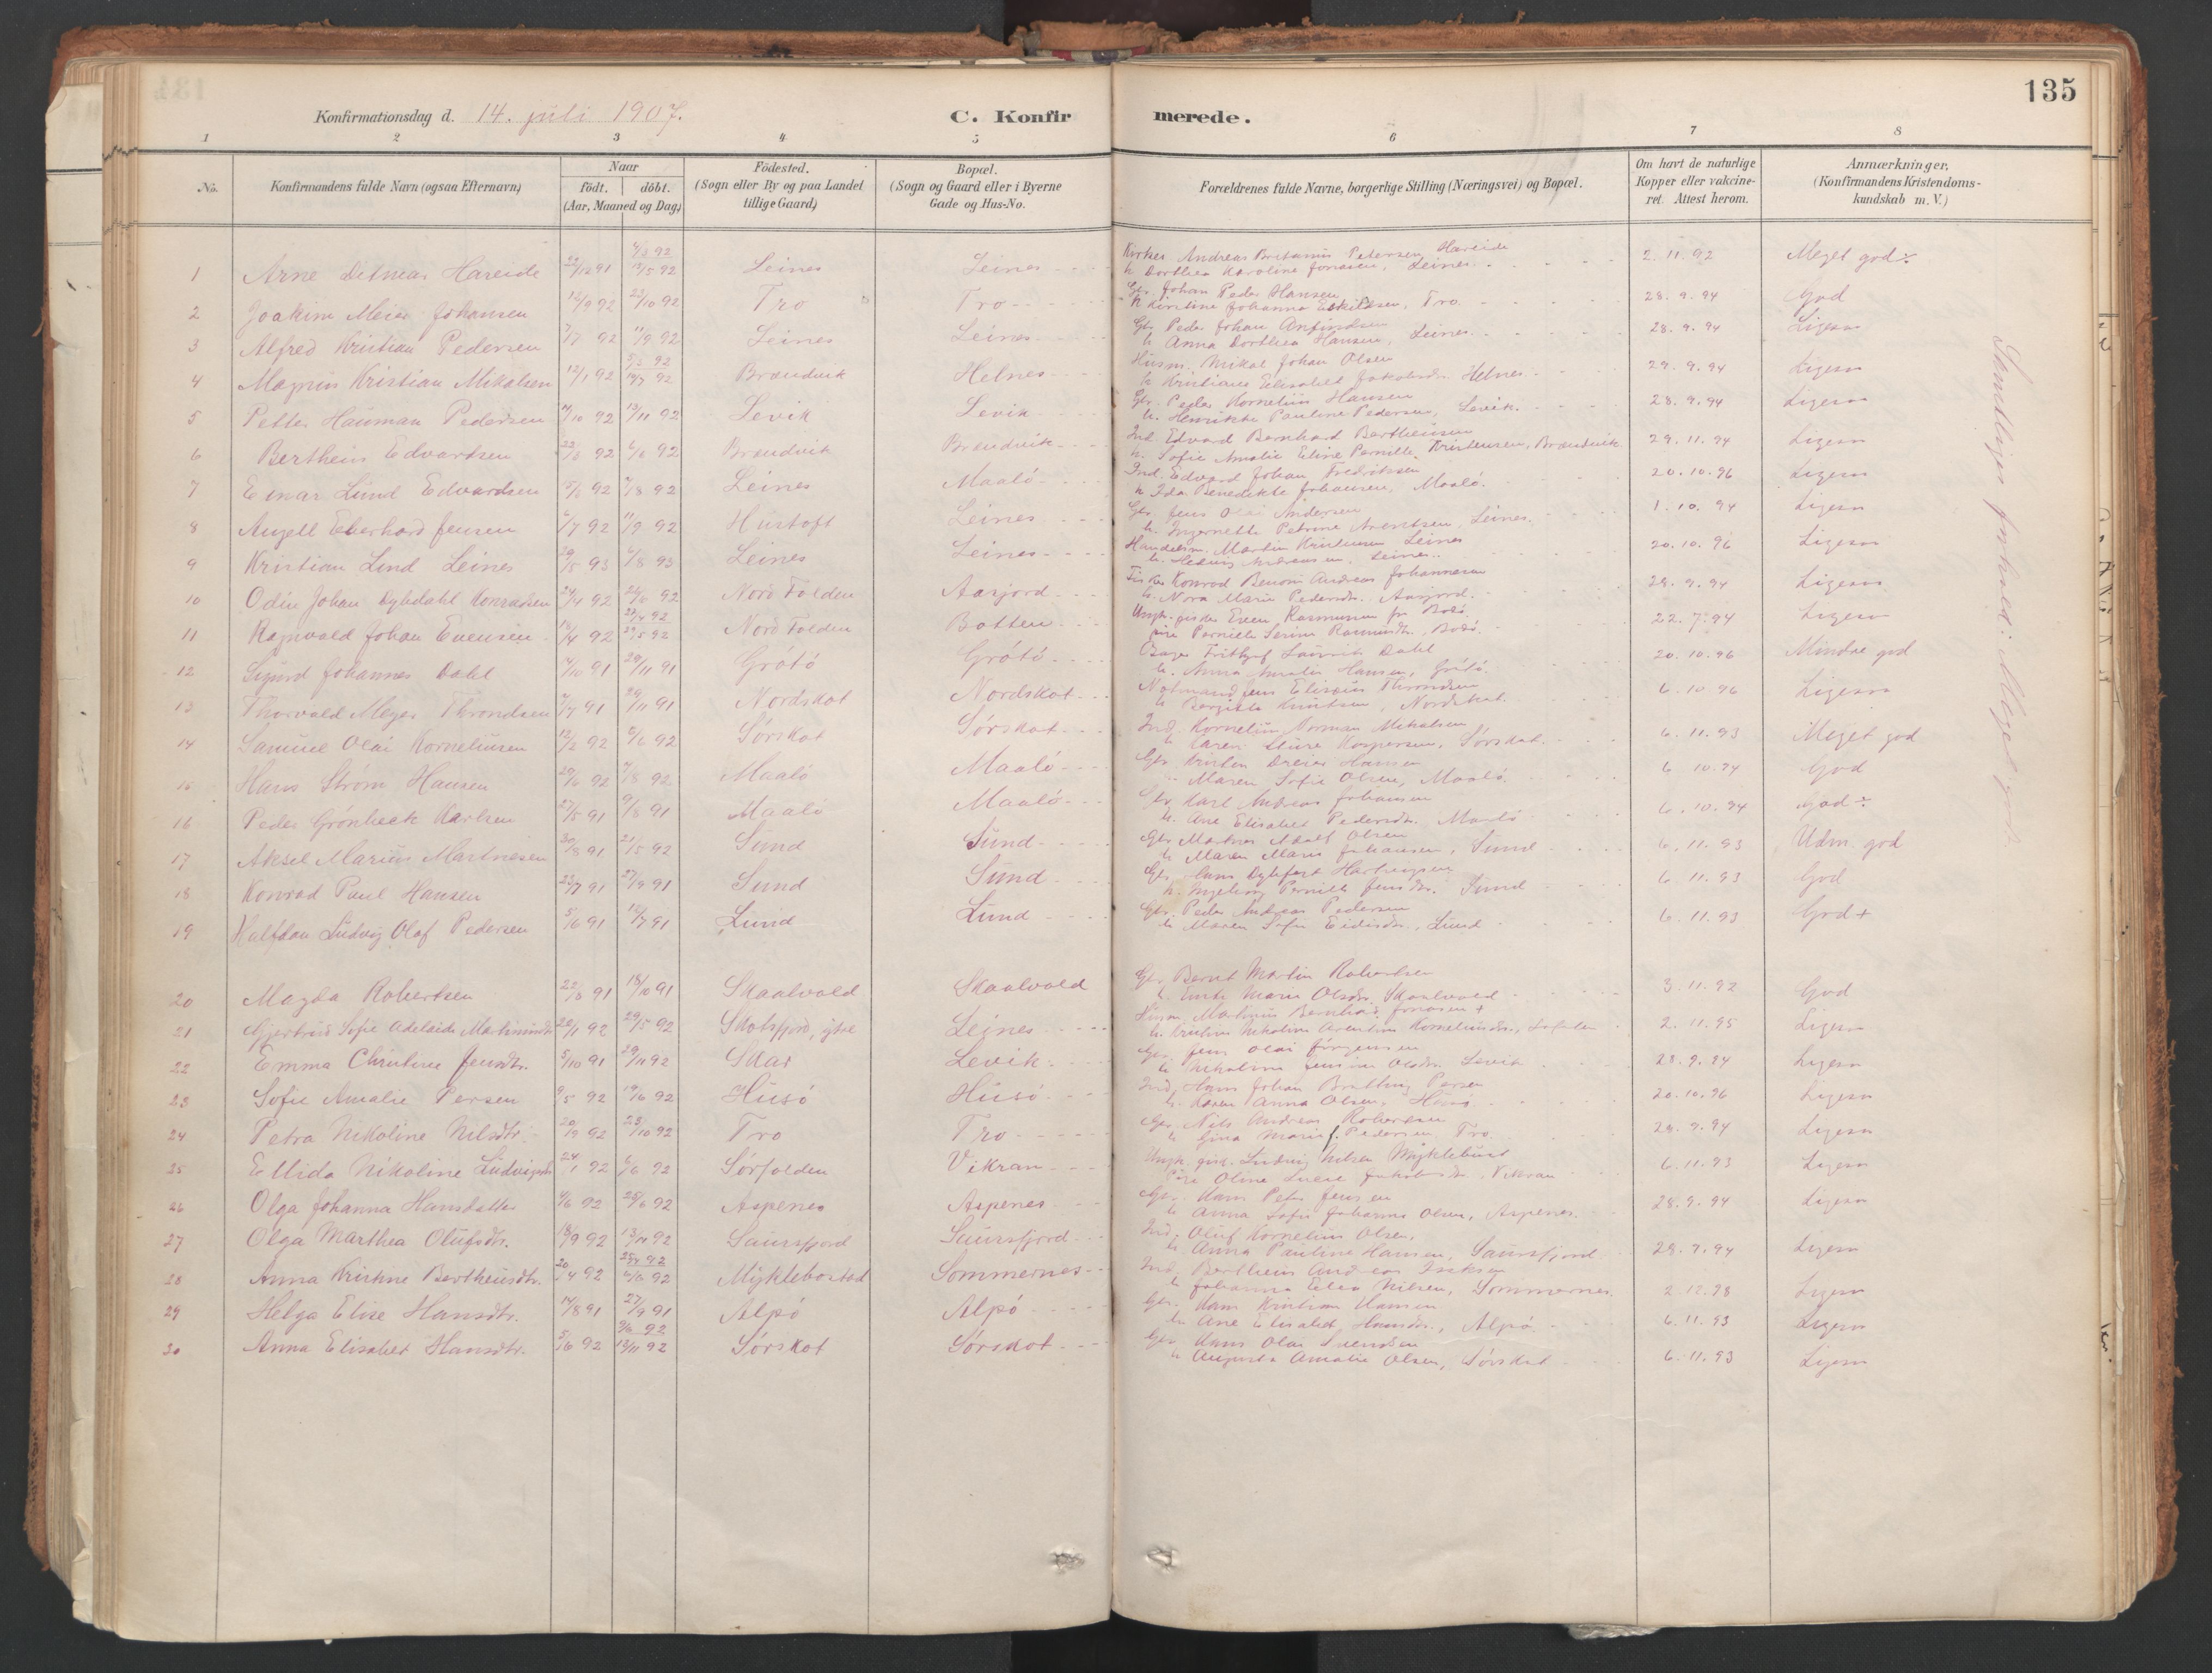 135
Konfirmationsdag d. 14. juli 1907.
C. Konfirmerede.
1 2 3 4 5 6 7 8
No.
Konfirmandens fulde Navn (ogsaa Efternavn)
Naar
födt. döbt.
(Aar, Maaned og Dag)
Födested.
(Sogn eller By og paa Landet
tillige Gaard)
Bopæl.
(Sogn og Gaard eller i Byerne
Gade og Hus-No.
Forældrenes fulde Navne, borgerlige Stilling (Næringsvei) og Bopæl.
Om havt de naturlige
Kopper eller vakcine-
ret. Attest herom.
Anmærkninger,
(Konfirmandens Kristendoms-
kundskab m. V.)
1 Arne Ditmar Hareide Leines Leines Andreas Pedersen Hareide 2.11.92 Meget god÷
Dorthea Karoline Jonasen, Leines
2 Joakim Meier Johansen 12/9 92 23/10 92 Tro Tro Gbr. Johan Peder Hansen 28.9.94 God
h. Kirstine Johanna Eskildsen, Tro.
3 Alfred Kristian Pedersen 7/7 92 11/9 92 Leines Leines Gbr. Peder Johan Anfindsen 28.9.94 Ligesaa
h. Anna Dorthea Hansen, Leines
4 Magnus Kristian Mikalsen 12/1 92 Brændvik Helnes Husm. Mikal Johan Olsen 29.9.94 Ligesaa
h. Kristiane Elisabet Jakobsdr. Helnes
5 Petter Hauman Pedersen 13/11 92 Levik Levik Gbr. Peder Kornelius Hansen 28.9.94 Ligesaa
h. Henrikke Pauline Pedersen, Levik.
6 Bertheus Edvardsen Brendvik Brendvik Ind. Edvard Bernhard Bertheussen 29.11.94 Ligesaa
h. Sofie Amalie Eline Pernille Kristensen, Brændvik
7 Einar Lund Edvardsen 7/8 92 Leines Maalö Ind. Edvard Johan Fredriksen 20.10.96 Ligesaa
h. Ida Benedikte Johansen, Maalö.
8 Angell Eberhard Jensen 6/7 92 11/9 92 Hustoft Leines Gbr. Jens Olai Andersen 1.10.94 Ligesaa
h. Petrine Arentsen, Leines.
9 Kristian Lind Leines 29/5 93 6/8 93 Leines Leines Handelsm. Martin Kristensen Leines 20.10.96 Ligesaa
h. Hedvig Andreassen, Leines
10 Odin Johan Dybdahl Konradsen 24/4 92 26/6 92 Nord Folden Aasjord Fisker Konrad Benoni Andreas Johannesen 28.9.94 Ligesaa
h. Nora Marie Pedersdr. Aasjord.
11 Ragnvald Johan Evensen 27/4 92 29/5 92 Nord Folden Botten Ungk. fisker Even Rasmussen fr. Bodö 22.7.94 Ligesaa
pige Pernille Serine Rasmusdr. Bodö.
12 Sigurd Johannes Dahl 29/11 91 Grötö Grötö Frithjof Laurik Dahl 20.10.96 Mindre god
h. Anna Amalie Hansen, Grötö.
13 Thorvald Meyer Throndsen 29/11 91 Nordskot Nordskot Jens Elisæus Throndsen 6.10.96 Ligesaa
h. Bergitte Knutsen, Nordskot.
14 Samuel Olai Korneliusen 12/2 92 6/6 92 Sörskot Sörskot Ind. Kornelius Norman Mikalsen 6.11.93 Meget god
h. Karen Kaspersen, Sörskot.
15 Hans Ström Hansen 29/6 92 7/8 92 Maalö Maalö Gbr. Kristen Dreier Hansen 6.10.94 God
Maren Sofie Olsen, Maalö.
16 Peder Grönbeck Karlsen 27/5 91 9/8 91 Maalö Maalö Gbr. Karl Andreas Johansen 6.10.94 God÷
h. Ane Elisabet Pedersdr. Maalö
17 Aksel Marius Martnesen 30/8 91 21/5 92 Sund Sund Gbr. Adolf Olsen 6.11.93 Udm. god
h. Maren Marie Johansen, Sund
18 Konrad Paul Hansen 23/7 91 27/9 91 Sund Sund Gbr. Hans 6.11.93 God
h. Ingeborg Pernille Jensdr. Sund
19 Halfdan Ludvig Olaf Pedersen 5/6 91 12/7 91 Lund Lund Gbr. Peder Andreas Pedersen 6.11.93 God+
h. Maren Sofie, Lund
20 Magda Robertsen 22/8 91 18/10 91 Skaalvold Skaalvold Gbr. Bernt Martin Robertsen 3.11.92 God
Marie Olsdr. Skaalvold
21 Gjertrud Sofie Adelaide Martinusdr. 20/1 92 29/5 92 Skotsfjord, ytre Leines Husm. Martinus Bernhard Jonasen + 2.11.95 Ligesaa
h. Kristine Nikoline Arentine Korneliusdr., Lofoten
22 Emma Christine Jensdtr. 5/10 91 Skar Levik Gbr. Jens Olai Jörgensen 28.9.94 Ligesaa
h. Nikoline Olsdr. Levik
23 Sofie Amalie Persen 9/5 92 19/6 92 Husö Husö Ind. Hans Johan Persen 20.10.96 Ligesaa
h. Karen Anna Olsen, Husö
24 Petra Nikoline Nilsdtr. 20/9 92 23/10 92 Tro Tro Gbr. Nils Andreas Robertsen 28.9.94 Ligesaa
h. Gina Marie J. Pedersen Tro
25 Ellida Nikoline Ludvigsdr. 24/1 92 6/6 92 Sörfolden Vikran Ungk. Ludvig Nilsen Myklebust 6.11.93 Ligesaa
Pige Oline Jakobsdr. Vikran
26 Olga Johanna Hansdatter 4/6 92 25/6 92 Aspenes Aspenes Gbr. Hans Peter Jensen 28.9.94 Ligesaa
h. Anna Sofie Johanne Olsen, Aspenes.
27 Olga Marthea Olufsdtr. 18/9 92 13/11 92 Saursfjord Saursfjord Ind. Oluf Kornelius Olsen, 28.9.94 Ligesaa
h. Anna Pauline Hansen, Saursfjord
28 Anna Kristine Bertheusdtr. 20/4 92 Myklebostad Sommernes Ind. Bertheus Andreas Isaksen 2.12.98 Ligesaa
h. Johanna Nilsen, Sommernes.
29 Helga Elise Hansdtr. 14/8 91 27/9 91 Alpö Alpö Gbr. Hans Kristian Hansen 6.11.93 Ligesaa
h. Ane Elisabet Hansdr., Alpö.
30 Anna Elisabet Hansdtr. 5/6 92 13/11 92 Sörskot Sörskot Gbr. Hans Olai Svendsen 6.11.93 Ligesaa
h. Augusta Amalie Olsen, Sörskot
Samtliges forhold: Meget godt